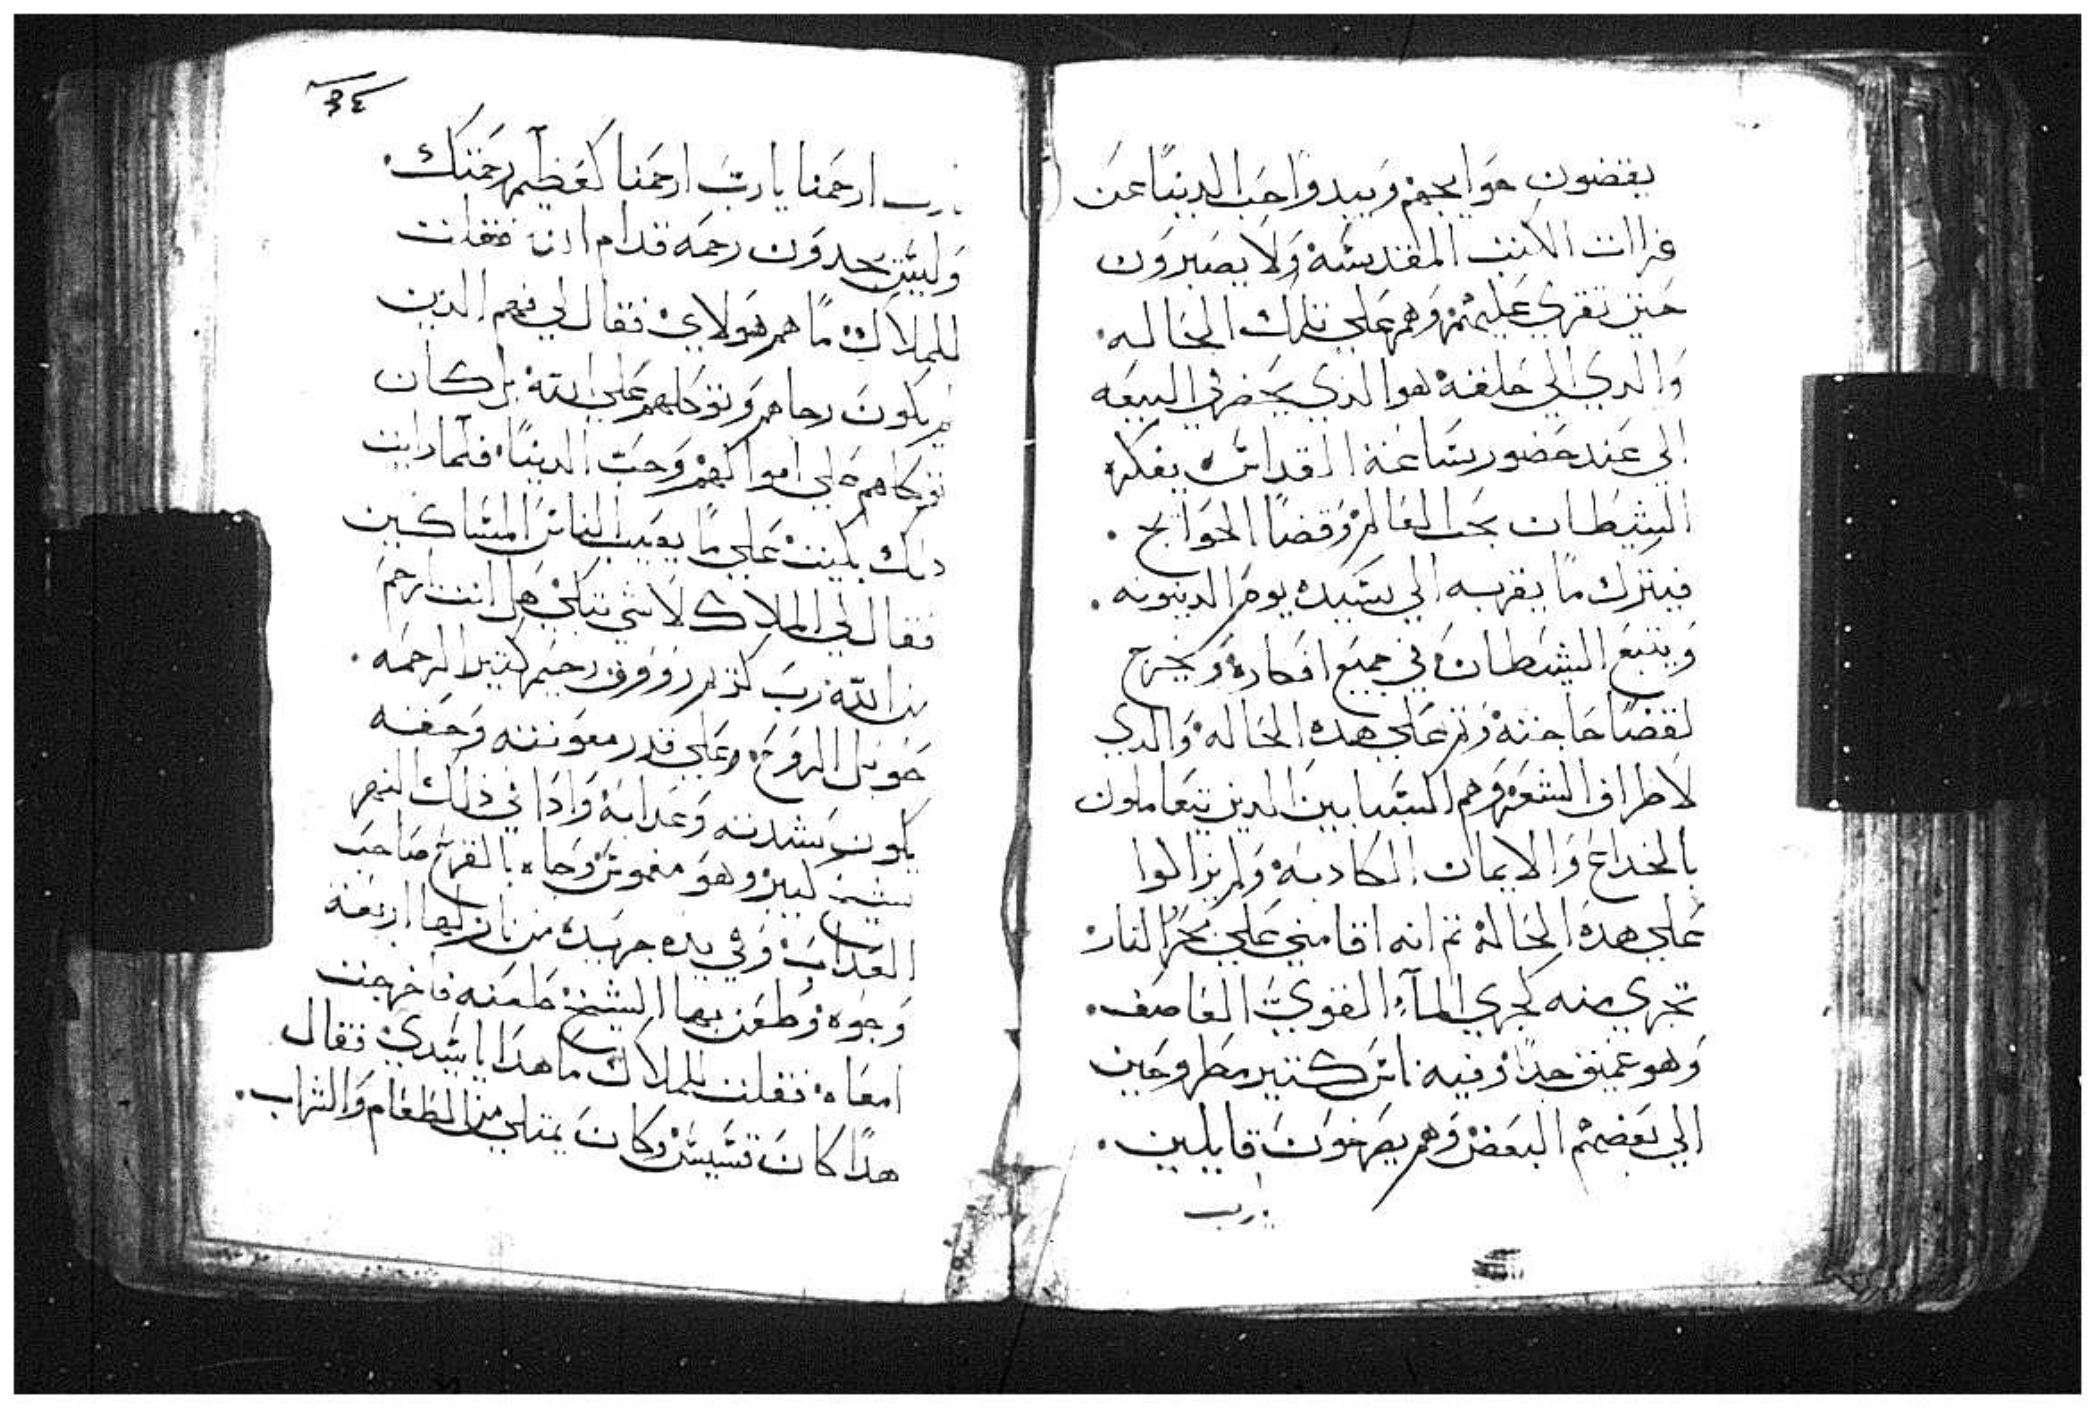 يقضون حوايجهم ويبدوا حب الدنيا عن
قراات الكتب المقدسه ولا يصبرون
حين تقري عليهم وهم علي تلك الحاله.
والدي الي حلقه هو الذي يحضر في البيعه
الي عند حضور ساعة القداس يفكره
الشيطان بحب العالم وقضا الحوايج.
فيترك ما يقربه الي سيده يوم الدينونه.
ويتبع الشيطان في جميع افكاره ويخرج
لقضا حاجته وتم علي هده الحاله والدي
لاطراف الشعر وهم السبابين الدين يتعاملون
بالخداع والايمان الكادبه ولم يزالوا
علي هده الحاله تم انه اقامني علي بحر النار
تجري منه كجري المآء القوي العاصف.
وهو عميق جدا وفيه ناس كتير مطروحين
الي بعضهم البعض وهم يصرخون قايلين.
يارب
٣٤
يارب ارحمنا يارب ارحمنا كعظيم رحمتك.
وليس يجدون رحمه قدام الله فقلت
للملاك ما هم هولاي فقال لي فهم الدين
لم يكون رجاهم وتوكلهم علي الله بل كان
توكلهم علي اموالهم وحب الدنيا فلما رايت
دلك بكيت علي ما يصيب الناس المساكين
فقال لي الملاك لاي شي تبكي هل انت ارحم
من الله رب كريم رووف رحيم كتير الرحمه.
طويل الروح وعلي قدر معونته وخفته
يكون شدته وعدابه وادا في ذلك النهر
شيخ كبير وهو مغموس وجاه بالقرب صاحب
العداب وفي يده جريده من نار لها اربعة
وجوه وطعن بها الشيخ طعنه فاخرجت
امعاه فقلت للملاك ما هدا يا سيدي فقال
هدا كان قسيس وكان يمتلي من الطعام والشراب.